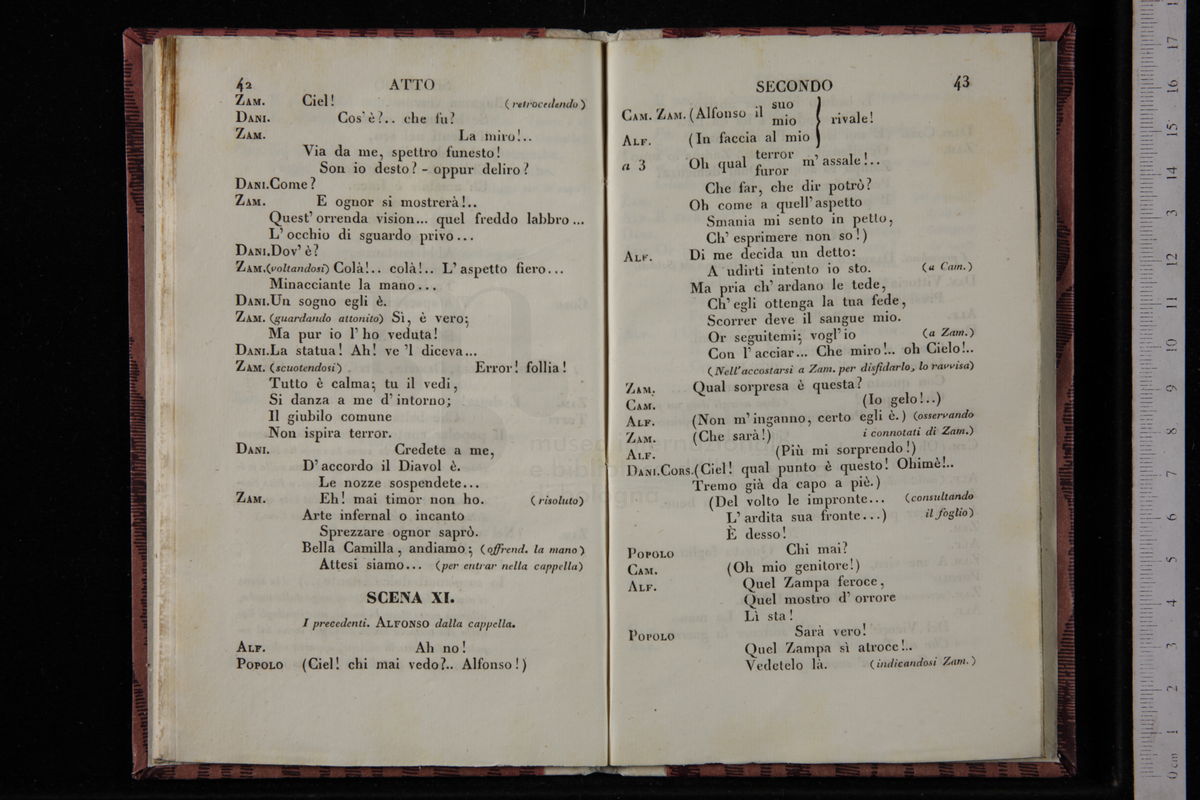 42 ATTO
ZAM. Ciel! (retrocedendo)
DANI. Cos'è?.. che fu?
ZAM. La miro!..
Via da me, spettro funesto!
Son io desto? - oppur deliro?
DANI. Come?
ZAM. E ognor si mostrerà!..
Quest'orrenda vision... quel freddo labbro...
L'occhio di sguardo privo...
DANI. Dov'è?
ZAM. (voltandosi) Colà!.. colà!.. L'aspetto fiero...
Minacciante la mano...
DANI. Un sogno egli è.
ZAM. (guardando attonito) Sì, è vero;
Ma pur io l'ho veduta!
DANI. La statua! Ah! ve 'l diceva...
ZAM. (scuotendosi) Error! follia!
Tutto è calma; tu il vedi,
Si danza a me d'intorno;
Il giubilo comune
Non ispira terror.
DANI. Credete a me,
D'accordo il Diavol è.
Le nozze sospendete...
ZAM. Eh! mai timor non ho. (risoluto)
Arte infernal o incanto
Sprezzare ognor saprò.
Bella Camilla, andiamo; (offrend. la mano)
Attesi siamo... (per entrar nella cappella)
SCENA XI.
I precedenti. ALFONSO dalla cappella.
ALF. Ah no!
POPOLO (Ciel! chi mai vedo?.. Alfonso!)
SECONDO 43
CAM. ZAM. (Alfonso il suo mio rivale!
ALF. (In faccia al mio
a 3 Oh qual terror furor m'assale!..
Che far, che dir potrò?
Oh come a quell'aspetto
Smania mi sento in petto,
Ch'esprimere non so!)
ALF. Di me decida un detto:
A udirti intento io sto. (a Cam.)
Ma pria ch'ardano le tede,
Ch'egli ottenga la tua fede,
Scorrer deve il sangue mio.
Or seguitemi; vogl'io (a Zam.)
Con l'acciar... Che miro!.. oh Cielo!..
(Nell'accostarsi a Zam. per disfidarlo, lo ravvisa)
ZAM. Qual sorpresa è questa?
CAM. (Io gelo!..)
ALF. (Non m'inganno, certo egli è.) (osservando
ZAM. (Che sarà!) i connotati di Zam.)
ALF. (Più mi sorprendo!)
DANI. CORS. (Ciel! qual punto è questo! Ohimè!..
Tremo già da capo a piè.)
(Del volto le impronte... (consultando
L'ardita sua fronte...) il foglio)
È desso!
POPOLO Chi mai?
CAM. (Oh mio genitore!)
ALF. Quel Zampa feroce,
Quel mostro d'orrore
Lì sta!
POPOLO Sarà vero!
Quel Zampa sì atroce!..
Vedetelo là. (indicandosi Zam.)